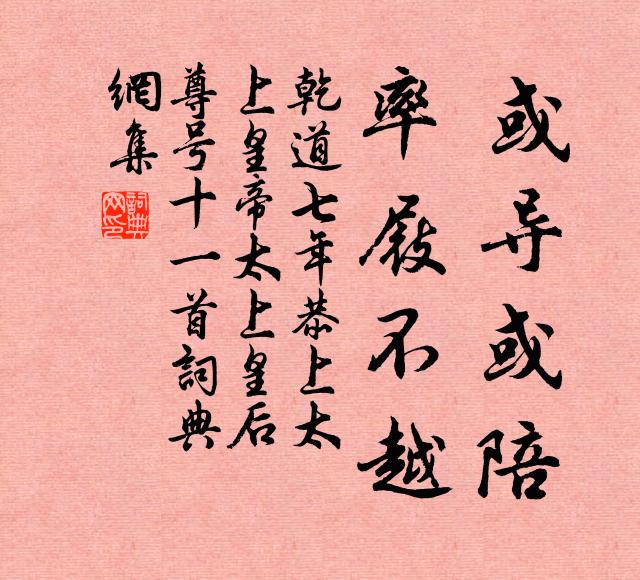 或导或陪
率履不越
乾道七年恭上太
上皇帝太上皇后
尊号十一首詞典
網集
詞典
网印